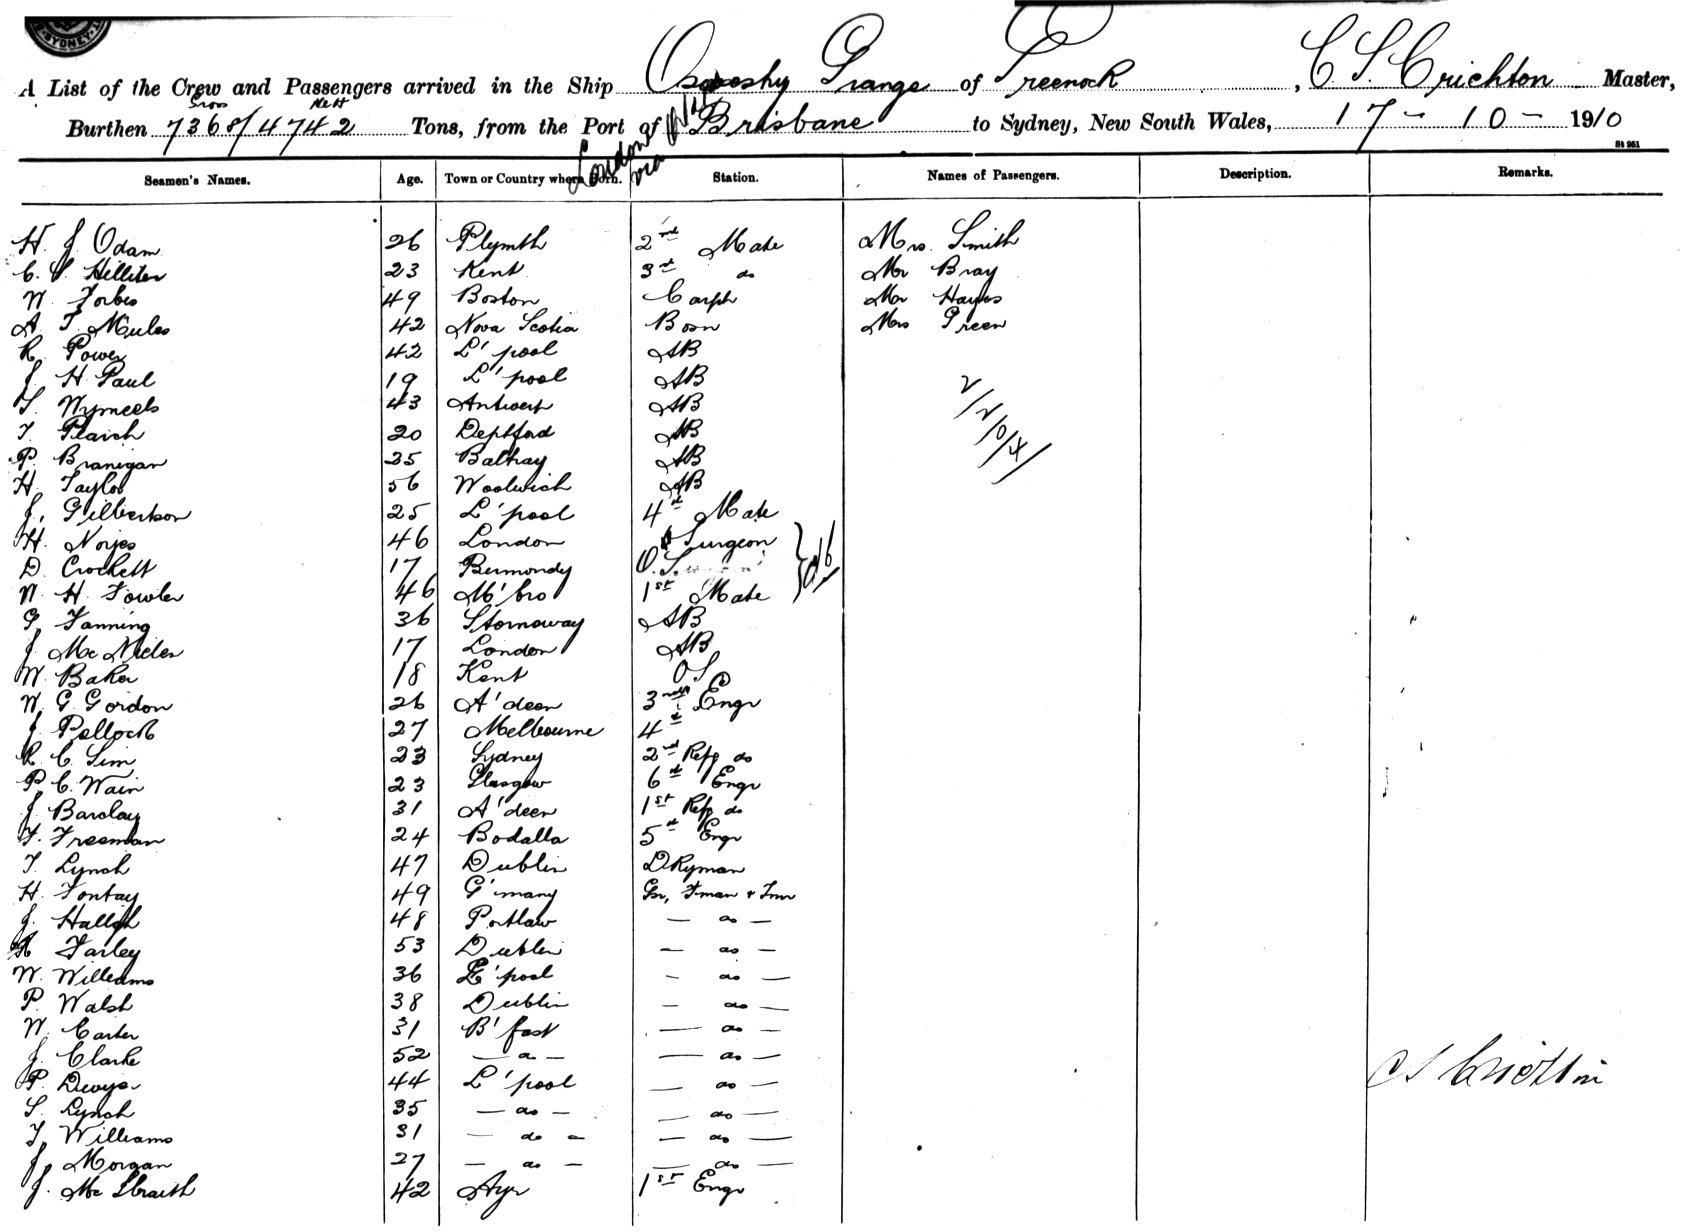 SYDNEY
A List of the Crew and Passengers arrived in the Ship Grange of Greenock, C S Crichton Master,
Gross Nett
Burthen 7368/4742 Tons, from the Port of London via Brisbane to Sydney, New South Wales, 17-10-1910
St 951
Seamen's Names. Age. Town or Country where Born. Station. Names of Passengers. Description. Remarks.
H. J. Odam 26 Plymth 2nd Mate Mrs. Smith
C. S. Hillier 23 Kent 3rd do Mr Bray
W Forbes 49 Boston Carptr Mr Hayes
A. T. Mules 42 Nova Scotia Bosn Mrs Green
R. Power 42 L'pool AB
J. H. Paul 19 L'pool AB
43 Antwerp AB
T. 20 Deptford AB
P. Branigan 25 Baltray AB
H. Taylor 56 Woolwich AB
J. Gilbertson 25 L'pool 4th Mate
H. Noyes 46 London Surgeon
D. Crockett 17 Bermondy O.S.
W. H. Fowler 46 M'bro 1st Mate
G. Fanning 36 Stornoway AB
J. 17 London AB
W. Baker 18 Kent OS
W. G. Gordon 26 A'deen 3rd Engr
J. Pollock 27 Melbourne 4th
R. C. Sim 23 Sydney 2nd Refg do
P. C. Wain 23 Glasgow 6th Engr
J. Barclay 31 A'deen 1st Refg do
F. Freeman 24 Bodalla 5th Engr
T. Lynch 47 Dublin DKyman
H. Fontay 49 G'many Gr, Fman & Tmr
J. 48 Portlaw — do —
Farley 53 Dublin — do —
W. Williams 36 L'pool — do —
P. Walsh 38 Dublin — do —
W. Carter 31 B'fast — do —
J. Clarke 52 — do — — do —
P. Dwyer 44 L'pool — do —
S. Lynch 35 — do — — do —
T. Williams 31 — do — — do —
J. Morgan 27 — do — — do —
J. 42 Ayr 1st Engr
C S Crichton